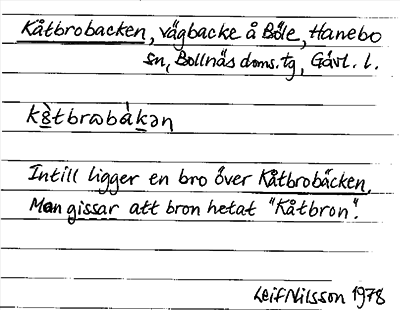 Kåtbrobacken, vägbacke å Böle, Hanebo
sn, Bollnäs doms. tg, Gävl. l.
kètbrωbàkən
Intill ligger en bro över Kåtbrobäcken.
Man gissar att bron hetat "Kåtbron".
Leif Nilsson 1978